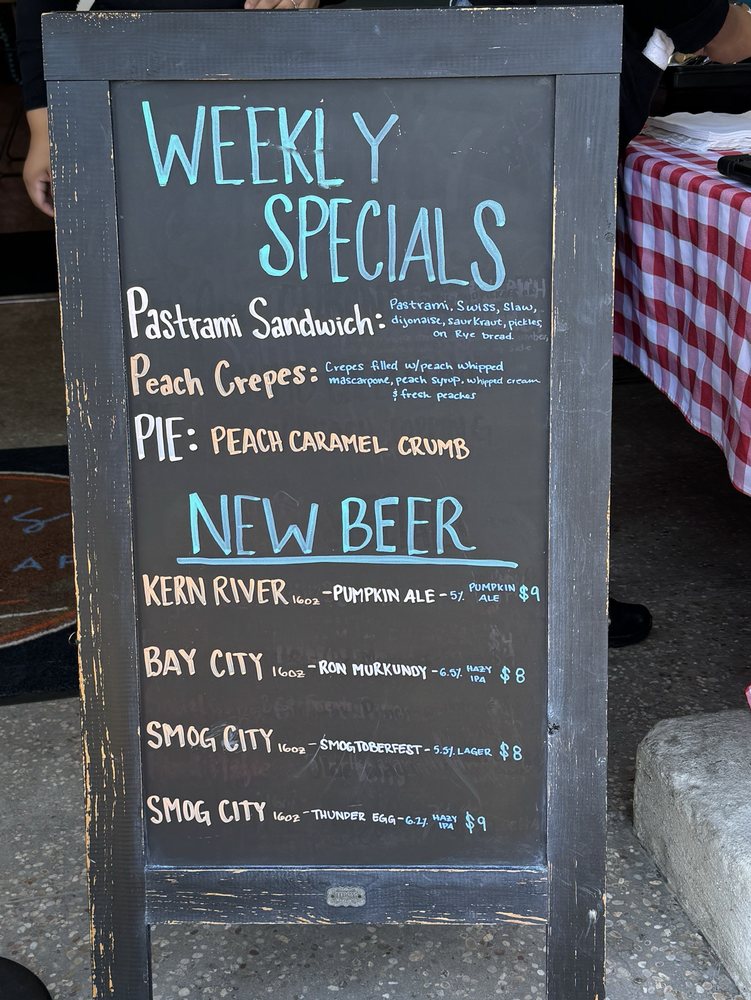 WEEKLY
SPECIALS
Pastrami Sandwich: Pastrami, Swiss, Slaw,
dijonaise, saurkraut, pickles,
on Rye bread.
Peach Crepes: Crepes filled w/peach whipped
mascarpone, peach syrup, whipped cream
& fresh peaches
PIE: PEACH CARAMEL CRUMB
NEW BEER
KERN RIVER 16oz - PUMPKIN ALE - 5% PUMPKIN ALE $9
BAY CITY 16oz - RON MURKUNDY - 6.5% HAZY IPA $8
SMOG CITY 16oz - SMOGTOBERFEST - 5.5% LAGER $8
SMOG CITY 16oz - THUNDER EGG - 6.2% HAZY IPA $9